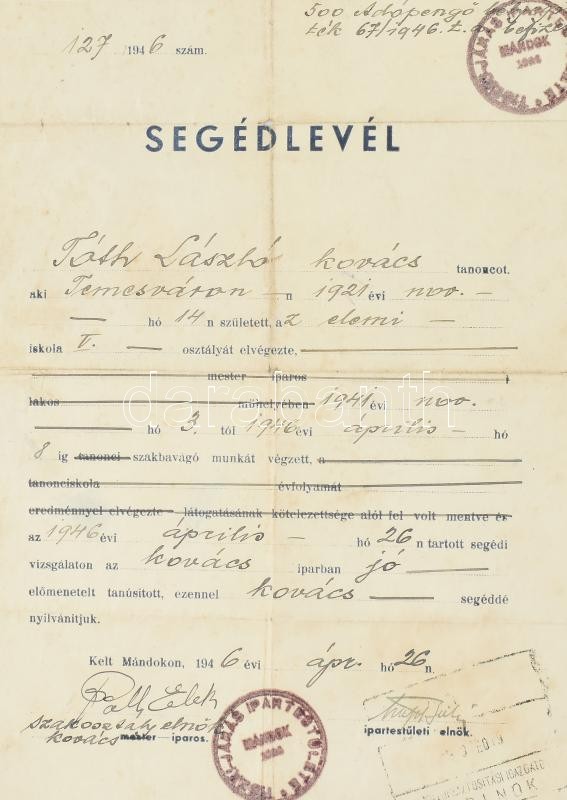 500 Adópengő
ték 67/1946. t. a.
127 1946 szám.
JÁRÁS IPARTESTÜLETE
MÁNDOK
SEGÉDLEVÉL
Tóth László kovács tanoncot,
aki Temesváron n 1921 évi nov. –
hó 14 n született, az elemi –
iskola V. osztályát elvégezte,
mester iparos
lakos műhelyében 1941 évi nov.
hó 3. tól 1946 évi április – hó
8 ig tanonci szakbavágó munkát végzett, a
tanonciskola évfolyamát
eredménnyel elvégezte látogatásának kötelezettsége alól fel volt mentve és
az 1946 évi április – hó 26 n tartott segédi
vizsgálaton az kovács iparban jó
előmenetelt tanúsított, ezennel kovács segéddé
nyilvánítjuk.
Kelt Mándokon, 1946 évi ápr. hó 26 n.
Elek
szakosztály elnök
kovács mester iparos.
ipartestületi elnök.
JÁRÁS IPARTESTÜLETE
MÁNDOK
darabanth